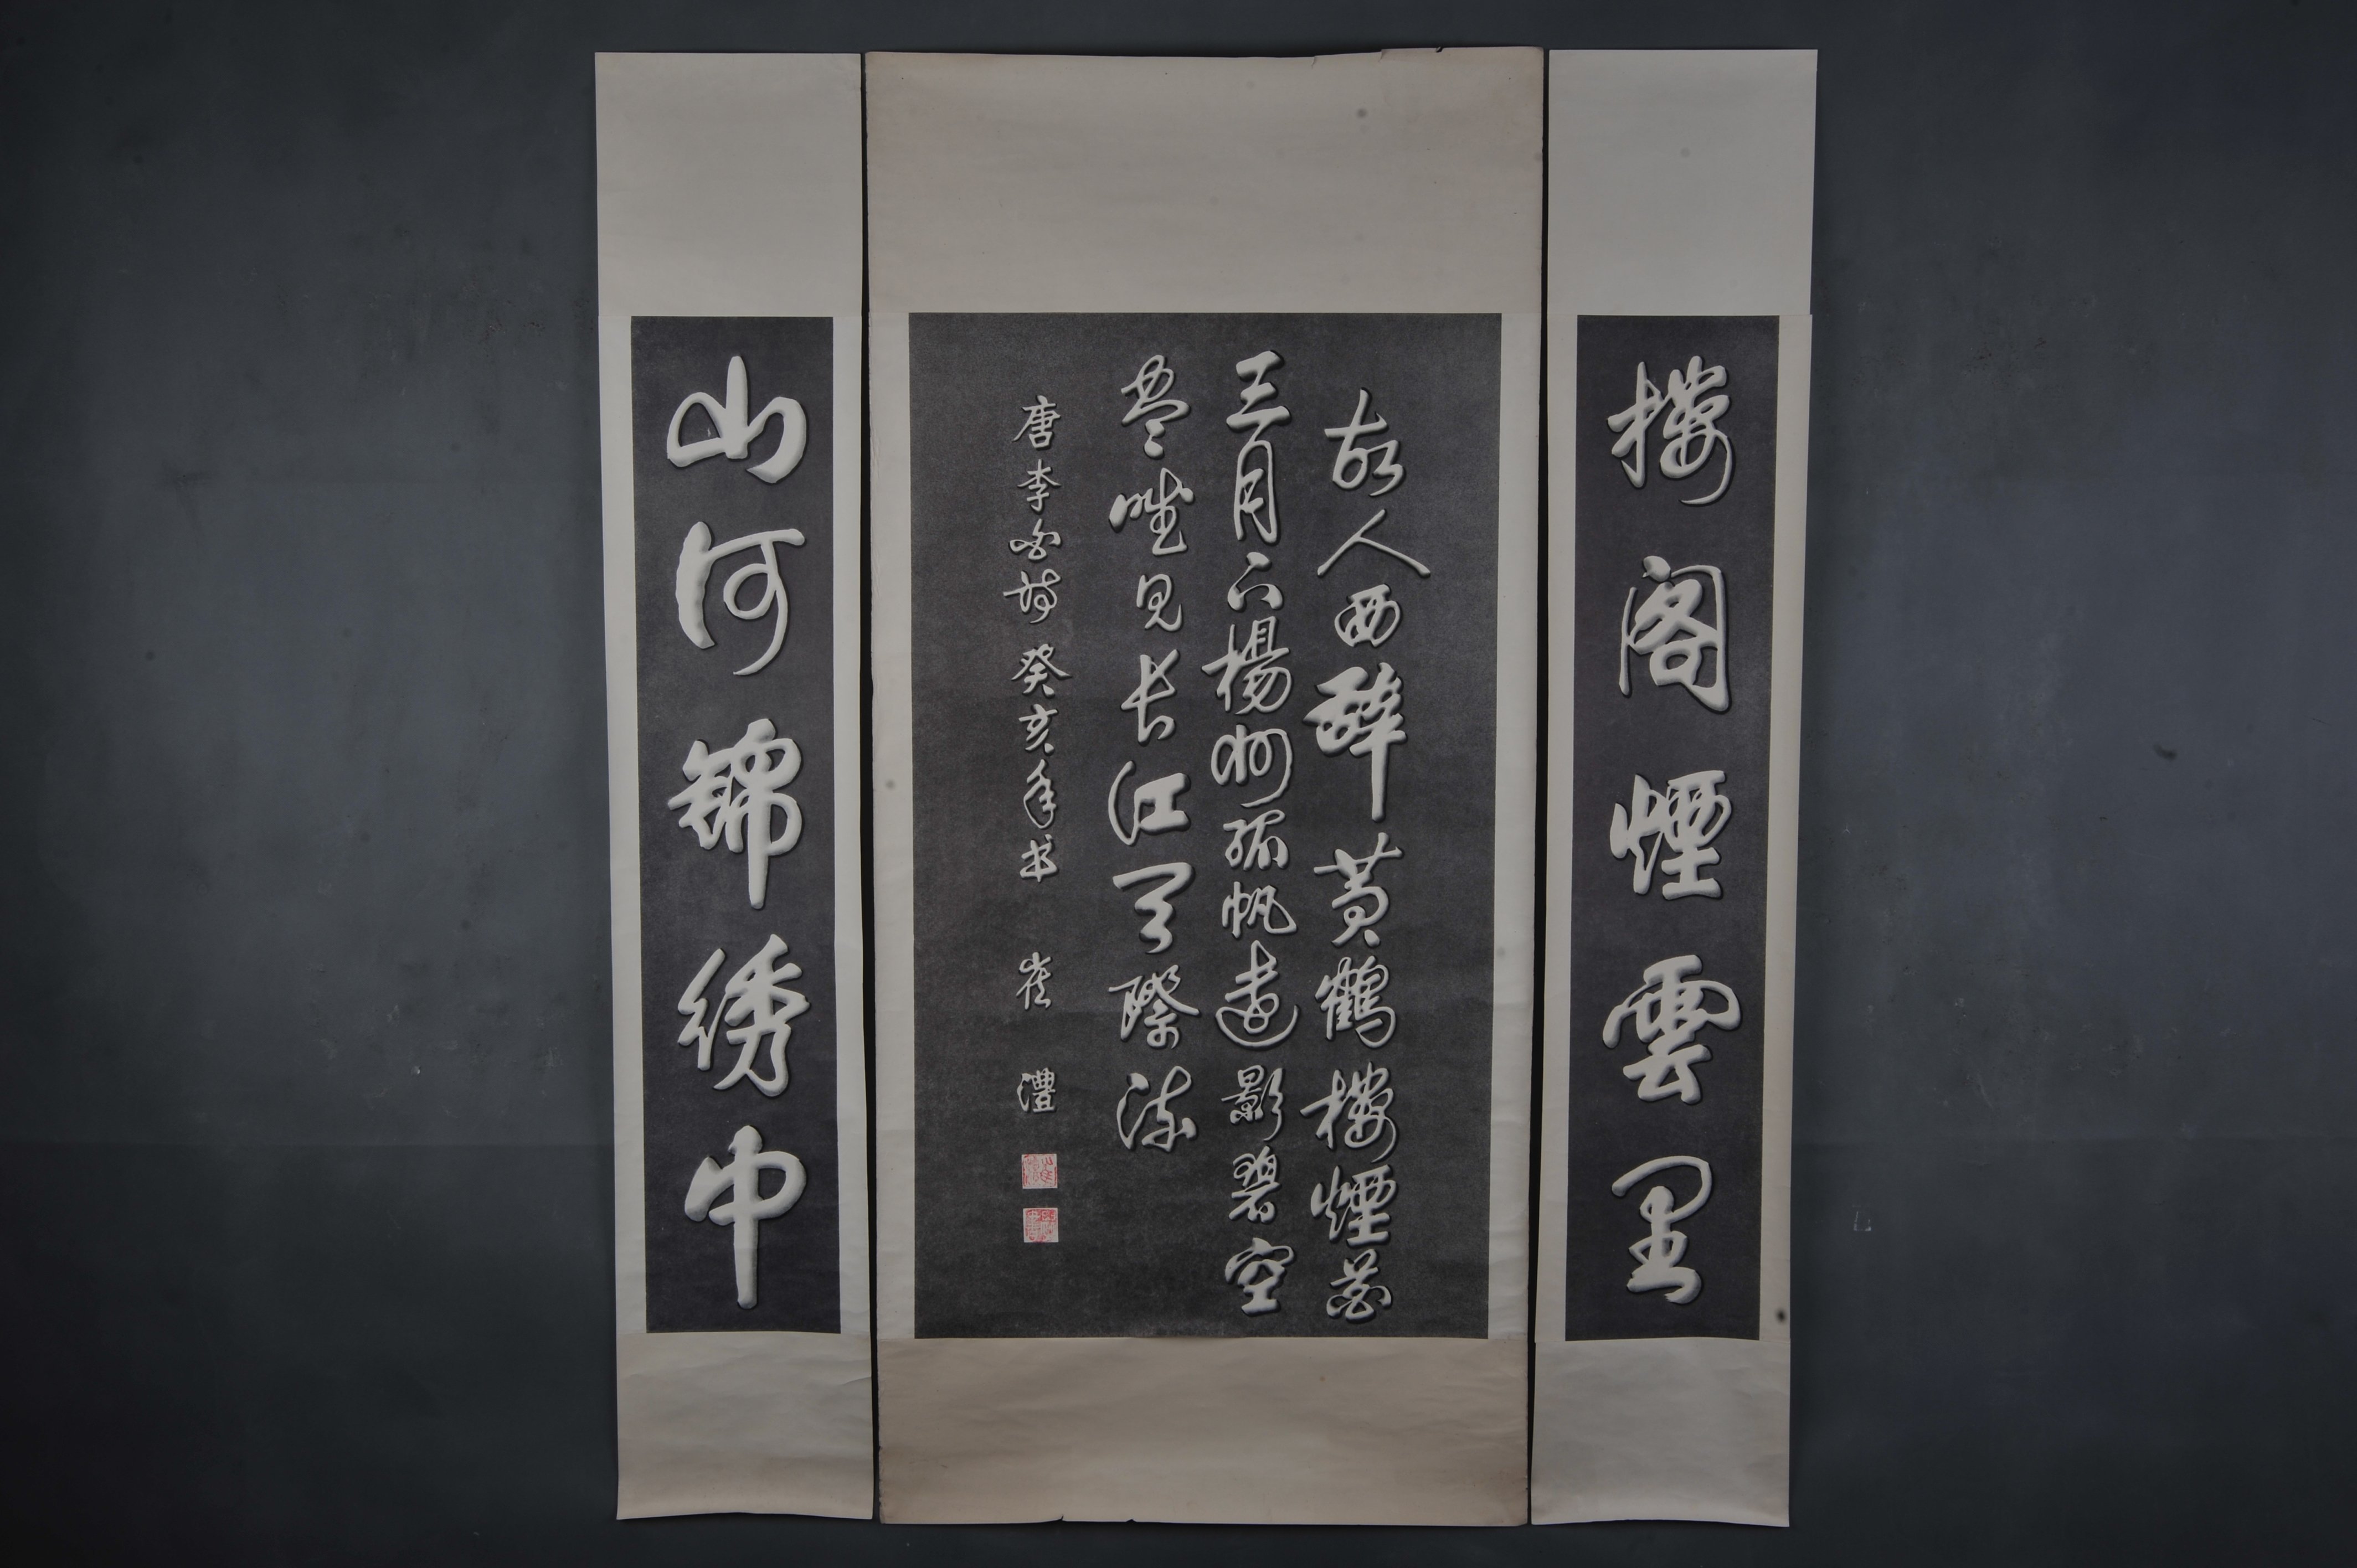 樓閣煙雲里
故人西辭黄鶴樓煙花
三月下楊州孤帆遠影碧空
尽唯見长江天際流
唐李白詩癸亥年书 崔澧
山河錦绣中